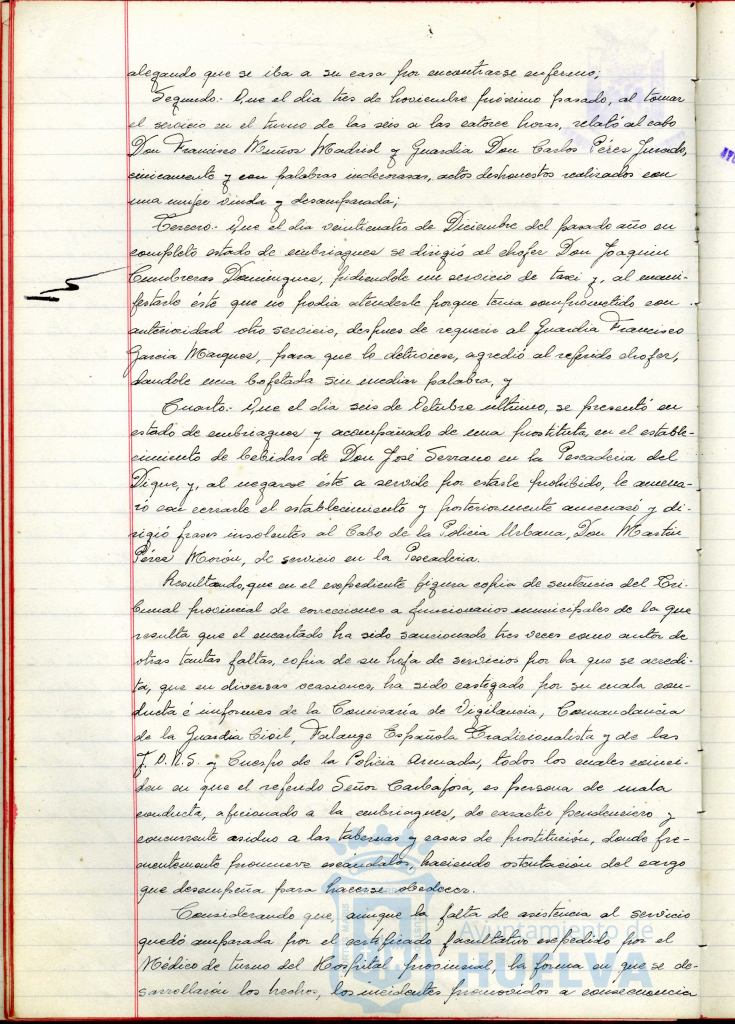 alegando que se iba a su casa por encontrarse enfermo;
Segundo.- Que el dia tres de Noviembre próximo pasado, al tomar
el servicio en el turno de las seis a las catorce horas, relató al cabo
Don Francisco Muños Madrid y Guardia Don Carlos Pérez Jurado,
cinicamente y con palabras indecorosas, actos deshonestos realizados con
una mujer viuda y desamparada;
Tercero.- Que el dia veinticuatro de Diciembre del pasado año en
completo estado de embriaguez se dirigió al chofer Don Joaquin
Cumbreras Dominguez, pidiendole un servicio de taxi y, al mani-
festarle éste que no podia atenderle porque tenia comprometido con
anterioridad otro servicio, despues de requerir al Guardia Francisco
Garcia Marquez, para que lo detuviese, agredió al referido chofer,
dandole una bofetada sin mediar palabra, y
Cuarto.- Que el dia seis de Octubre último, se presentó en
estado de embriaguez y acompañado de una prostituta, en el estable-
cimiento de bebidas de Don José Serrano en la Pescaderia del
Dique, y, al negarse éste a servirle por estarle prohibido, le amena-
zó con cerrarle el establecimiento y posteriormente amenazó y di-
rigió frases insolentes al Cabo de la Policia Urbana, Don Martin
Pérez Morón, de servicio en la Pescaderia.
Resultando, que en el expediente figura copia de sentencia del Tri-
bunal provincial de correcciones a funcionarios municipales de la que
resulta que el encartado ha sido sancionado tres veces como autor de
otras tantas faltas, copia de su hoja de servicios por la que se acredi-
ta, que en diversas ocasiones, ha sido castigado por su mala con-
ducta é informes de la Comisaría de Vigilancia, Comandancia
de la Guardia Civil, Falange Española Tradicionalista y de las
J.O.N.S. y Cuerpo de la Policia Armada, todos los cuales coinci-
den en que el referido Señor Carbafosa, es persona de mala
conducta, aficionado a la embriaguez, de caracter pendenciero y
concurrente asiduo a las tabernas y casas de prostitución, donde fre-
cuentemente promueve escándalos, haciendo ostentación del cargo
que desempeña para hacerse obedecer.
Considerando que, aunque la falta de asistencia al servicio
quedó amparada por el certificado facultativo expedido por el
Médico de turno del Hospital provincial, la forma en que se de-
sarrollarón los hechos, los incidentes promovidos a consecuencia
Ayuntamiento de
HUELVA